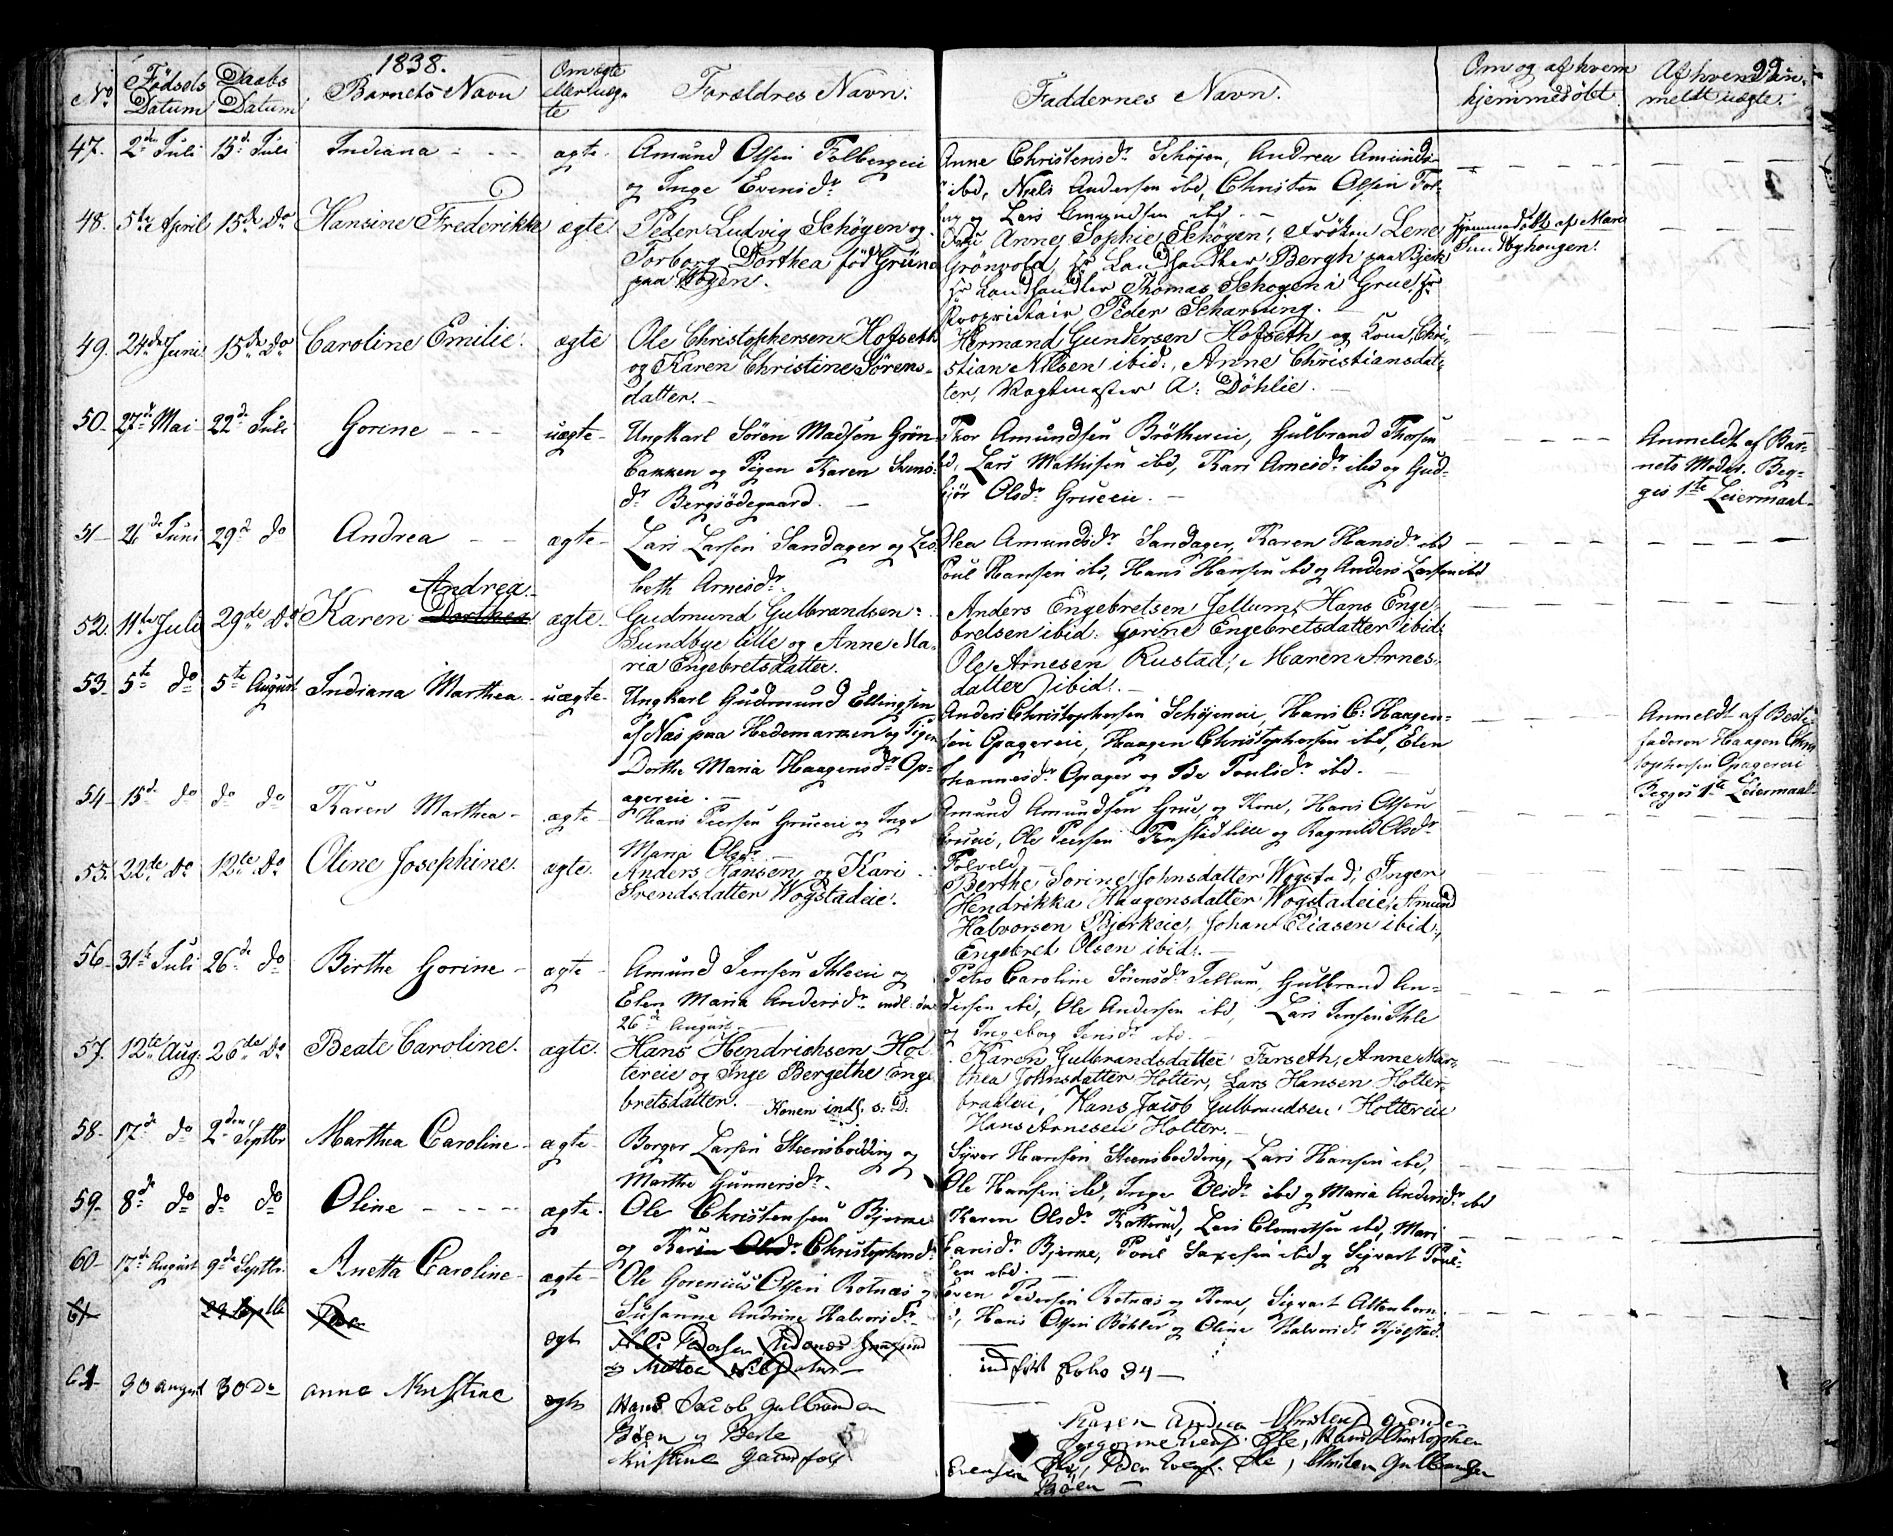 1838.
99
No Fødsels Datum Daabs Datum Barnets Navn Om ægte eller uægte Forældres Navn. Faddernes Navn. Om og af hvem hjemmedøbt Af hvem anmeldt uægte.
47. 2de Juli 15d Juli Indiana ægte. Amund Olsen Folbergeie
og Inge Evensdr.
Anne Christensdr. Schøjen, Andrea Amunds-
ibd, Niels Andersen ibd, Christen Olsen
og Lars Amundsen ibd.
48. 5te April 15de do Hansine Frederikke ægte Peder Ludvig Schøyen og
Torborg Dorthea fød Grüne
paa
Anne Sophie Schøyen, Frøken Lene
Grønvold, Hr Landhandler Bergh paa Bjerke
Hr Landhandler Thomas Schøyen i Grue, Hr
Proprietair Peder Scharning.
Hjemmedøbt af Mari
49. 24de Juni 15de do Caroline Emilie. ægte Ole Christophersen Hofseth
og Karen Christine Sørens-
datter.
Hermand Gundersen Hofseth og Kone, Chri-
stian Nilsen ibid., Anne Christiansdat-
ter, Vagtmester A: Døhlie.
50. 27d Mai 22de Juli Gorine uægte Ungkarl Sören Madsen Grøn-
bakken og Pigen Karen
dr Bergsødegaard.
Thor Amundsen Brøthereie, Gulbrand Thorsen
ibd, Lars Mathisen ibd, Kari Arnesdr. ibd og Gud-
bjør Olsdr. Grueeie.
Anmeldt af Bar-
nets Moder. Beg-
ges 1ste Leiermaal
51 21de Juni 29d do Andrea ægte Lars Larsen Sandager og Lis-
beth Arnesdr.
Olea Amundsdr. Sandager, Karen Hansdr. ibd
Poul Hansen ibd, Hans Hansen ibd og Anders Larsen ibd
Andrea
52. 11te Juli 29de do Karen Dorthea ægte Gudmund Gulbrandsen
Sundbye lille og Anne Ma-
ria Engebretsdatter.
Anders Engebretsen Jellum, Hans Enge-
bretsen ibid. Gorine Engebretsdatter ibid.
Ole Arnesen Rustad, Maren Arnes-
datter ibid.
53. 5te do 5te August Indiana Marthea uægte Ungkarl Gudmund Ellingsen
af Næs paa Hedemarken og Pigen
Dorthe Maria Haagensdr. Op-
agereie.
Anders Christophersen Schøjeneie, Hans C. Haagen-
sen Opagereie, Haagen Christophersen ibd, Elen
Johannesdr. Opager og Poulsdr. ibd.
Anmeldt af Beste-
faderen Haagen Chri-
stophersen Opagereie
Begges 1ste Leiermaal
54 15d do do do Karen Marthea ægte Hans Peersen Grueeie og Inge
Maria Olsdr.
Amund Amundsen Grue og Kone, Hans Olsen
Grueeie, Ole Peersen Tomstad lille og Ragnild Olsdr.
55. 22te do 12te do Oline Josephine. ægte. Anders Hansen og Kari
Trendsdatter Wogstadeie.
Berthe Sorine Johnsdatter Wogstad, Inger
Hendrikka Haagensdatter Wogstadeie, Amund
Halvorsen Bjerkeie, Johan Eliasen ibid.,
Engebret Olsen ibid.
56 31te Juli 26de do Berthe Gorine ægte Amund Jensen Ihleeie og
Elen Maria Andersdr. indl. den
26de August.
Caroline Sörensdr. Jellum, Gulbrand An-
dersen ibd, Ole Andersen ibd, Lars Jensen Ihle
og Ingeborg Jensdr. ibd.
57. 12te Aug. 26de do Beate Caroline. ægte. Hans Hendrichsen Hol-
tereie og Inge Bergethe Enge-
bretsdatter. Konen indl. s. D.
Karen Gulbrandsdatter Farseth, Anne Mar-
thea Johnsdatter Holter, Lars Hansen Holter-
braateri, Hans Jacob Gulbrandsen Holtereie
Hans Arnesen Holter.
58. 17de do 2den Septbr Marthea Caroline ægte Borger Larsen Steensbødding og
Marthe Gunnersdr.
Syver Hansen Steensbødding, Lars Hansen ibd,
Ole Hansen ibd, Inge Olsdr. ibd og Maria Andersdr. ibd
59. 8de do do do Oline ægte. Ole Christensen Bjerne
og Karen Olsdr. Christophersdr.
Karen Olsdr. Katterud, Lars Clemetsen ibd, Mari
Bjerne, Poul ibd og Sigvart Poul-
sen ibd.
60 17de August 9de Septbr. Anetta Caroline ægte Ole Gorenius Olsen Rotnæs og
Susanne Andrine Halvorsdr.
Even Pedersen Rotnæs og Kone, Sigvart Altenborn
Hans Olsen Böhler og Oline Halvorsdr. Kjølstad.
61 29 Septb ægte
indført Folio 94
61 30 August 30 Do Anne Kristine ægte Hans Jacob Gulbrandsen
Bøen og Berte
Kristine
Karen Andrea
Ihle, Hans Christophen
Evensen Ihle, Peder Evens. Ihle, Christen Gulbrandsen
Bøen